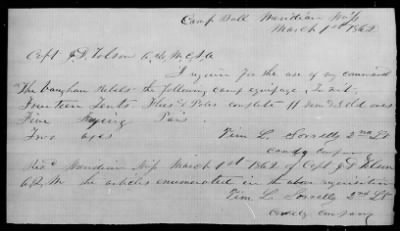 Camp Ball Meridian Miss
March 1st 1862
Capt J. D. Tolson A. Q. M. C. S. A
I require for the use of my command
The Vaughan Rebels the following camp equipage, to wit.
Fourteen Tents Flies & Poles complete 11 new & 3 old ones
Five Frying Pans
Two axes
L. 2nd Lt
Comdg Company
Recd Meridian Miss March 1st 1862 of Capt J. D.
A Q. M the articles enumerated in the above requisition
L. 2nd Lt
Comdg Company